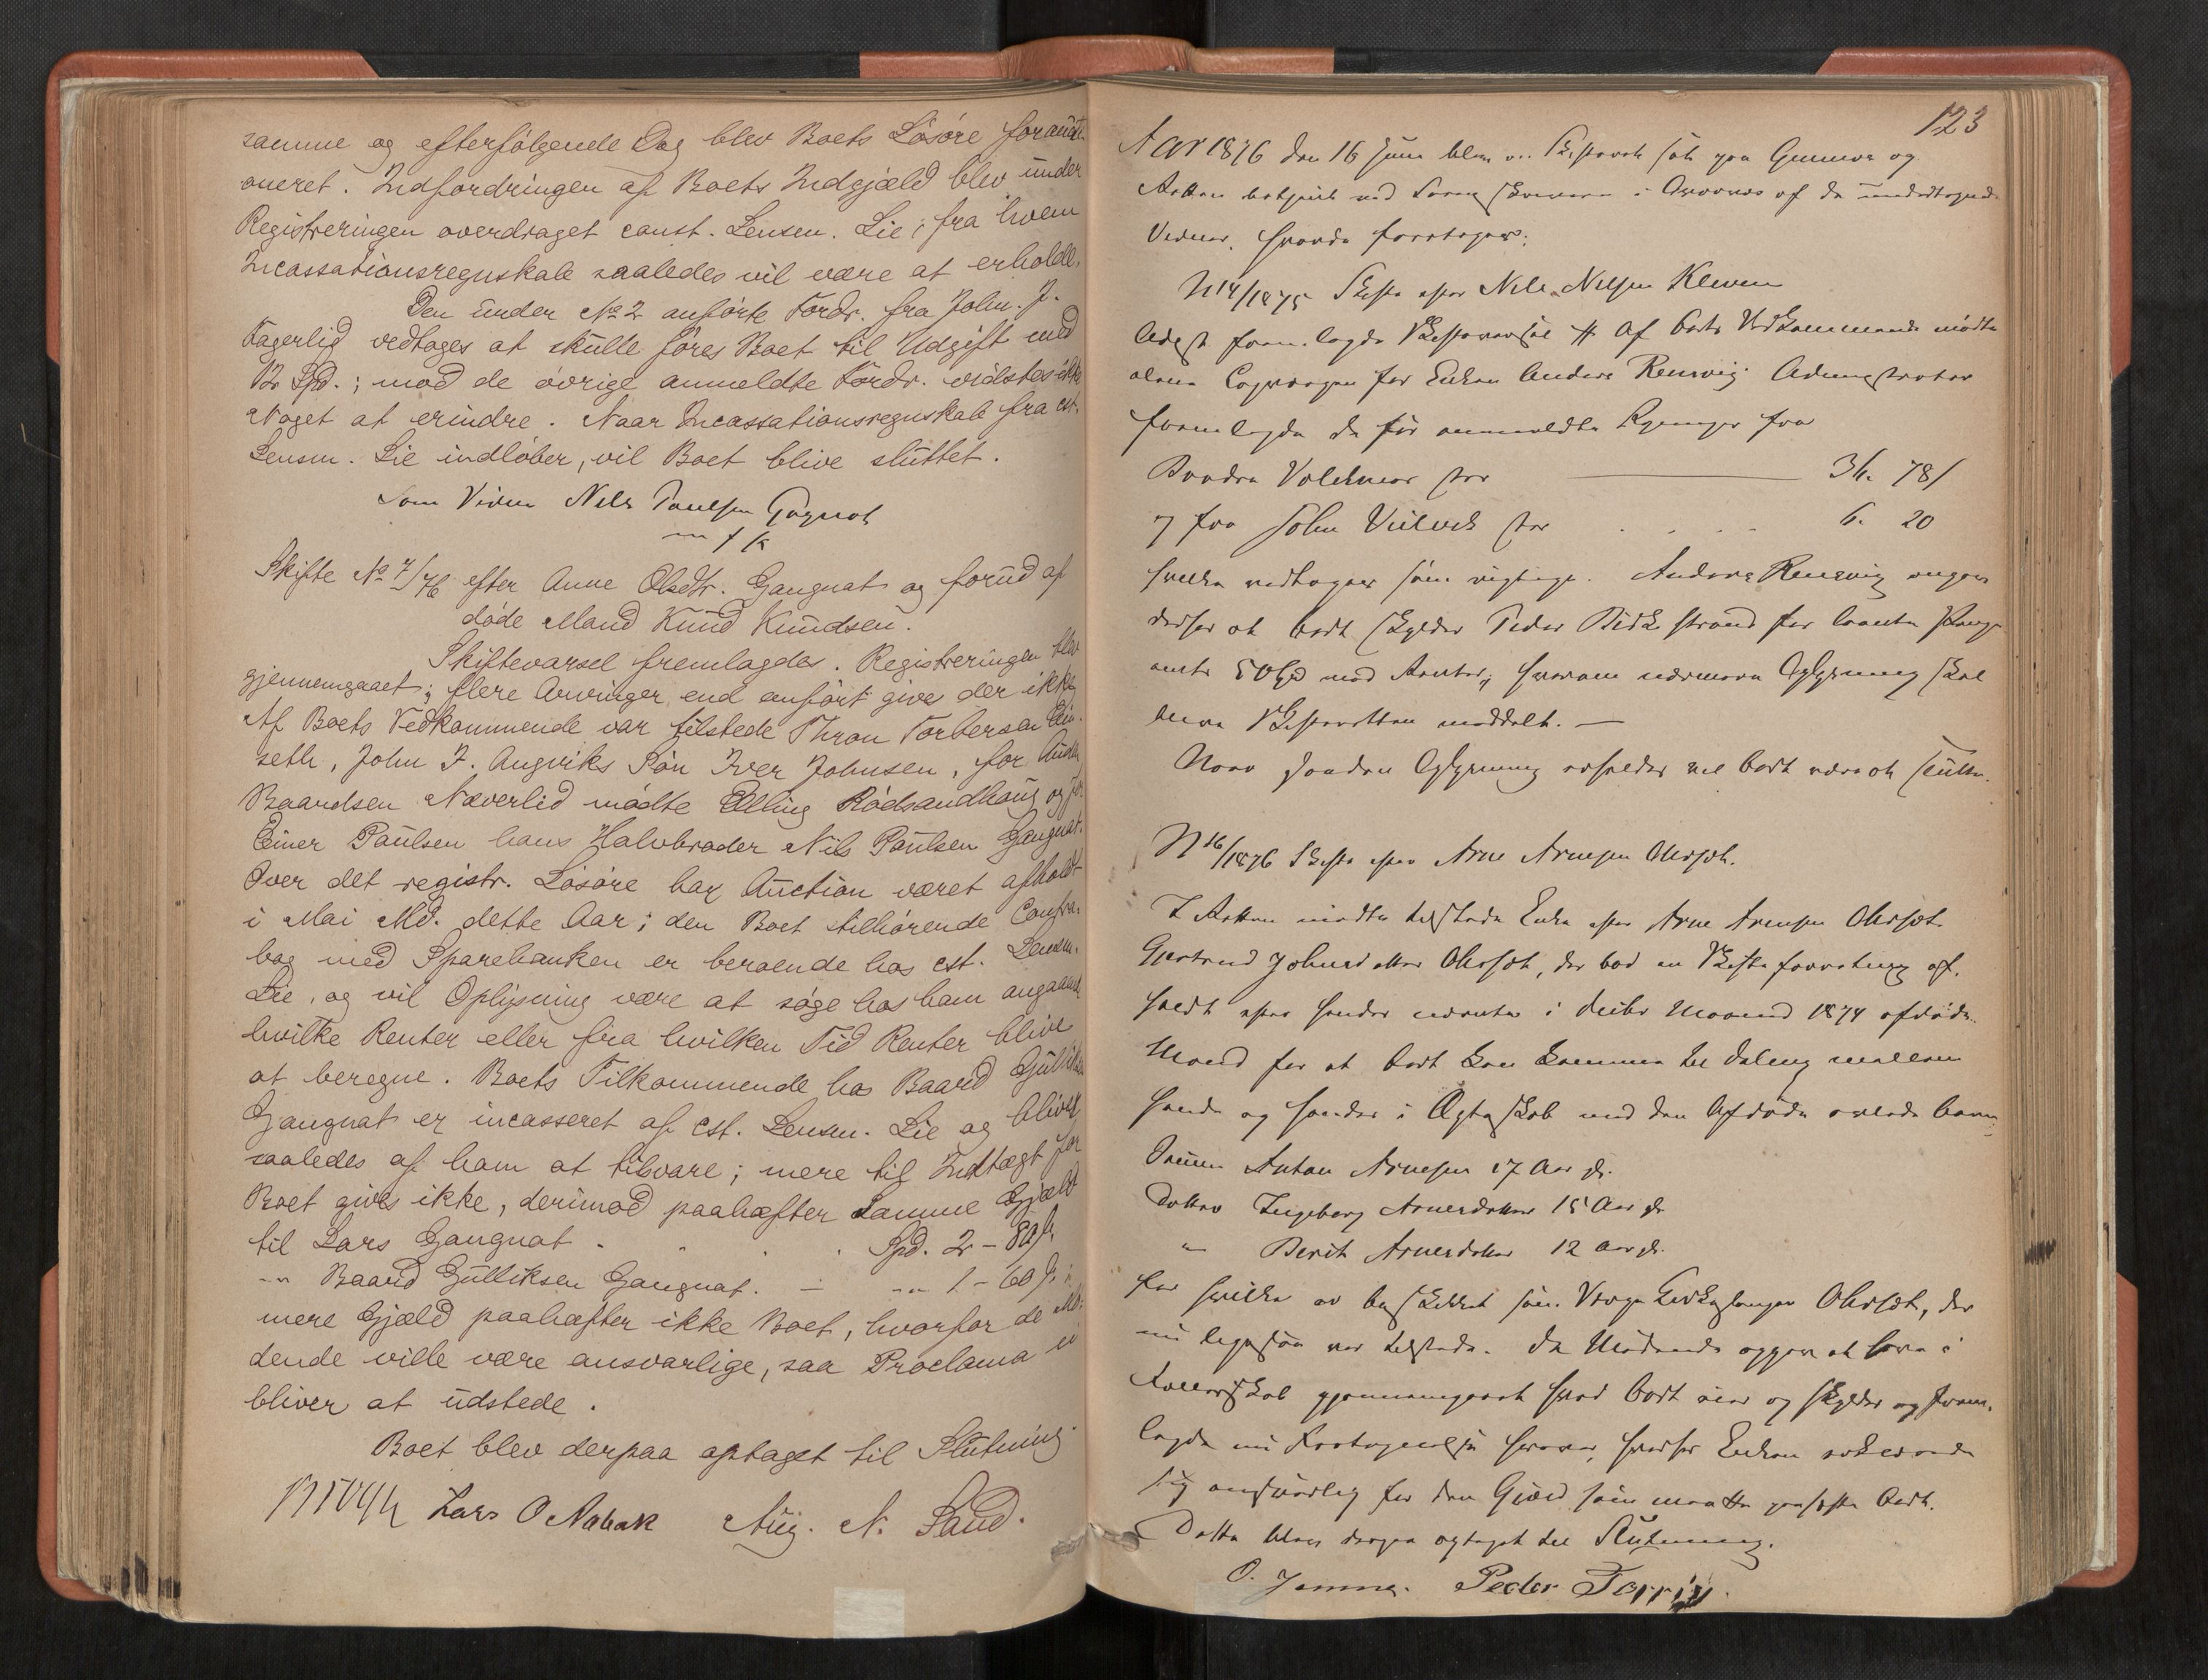 samme og efterfølgende Dag blev Boets Løsøre forauct-
oneret. Indfordringen af Boets Indgjæld blev under
Registreringen overdraget const. Lensm. Lie; fra hvem
Incassationsregnskab saaledes vil være at erholde.
Den under No 2 anførte Fordr. fra John. J.
Fagerlid vedtages at skulle føres Boet til Udgift med
Spd.; mod de øvrige anmeldte Fordr. vidstes ikke
Noget at erindre. Naar Incassationsregnskab fra cst.
Lensm. Lie indløber, vil Boet blive sluttet.
Som Vidne Nils Paulsen Gagnat
m f P
Skifte No 7/76 efter Anne Olsdtr. Gangnat og forud af
døde Mand Knud Knudsen.
Skiftevarsel fremlagdes. Registreringen blev
gjennemgaaet; flere Arvinger end anført gives der ikke
Af Boets Vedkommende var tilstede Thron Torbersen
seth, John I. Angviks Søn Iver Johnsen, for
Baardsen Næverlid mødte Elling Rødsandhaug og for
Einer Paulsen hans Halvbroder Nils Paulsen Gangnat.
Over det registr. Løsøre har Auction været afholdt
i Mai Md. dette Aar; den Boet tilhørende Contra-
bog med Sparebanken er beroende hos cst. Lensm.
Lie, og vil Oplysning være at søge hos ham angaaende
hvilke Renter eller fra hvilken Tid Renter blive
at beregne. Boets Tilkommende hos Baard Gulliksen
Gangnat er incasseret af cst. Lensm. Lie og bliver
saaledes af ham at tilsvare; mere til Indtægt for
Boet gives ikke, derimod paahæfter samme Gjæld
til Lars Gangnat . . . . Spd. 2 - 80 ß
-"- Baard Gulliksen Gangnat. - -"- 1 - 60 ß;
mere Gjæld paahæfter ikke Boet, hvorfor de Mø-
dende ville være ansvarlige, saa Proclama ei
bliver at udstede.
Boet blev derpaa optaget til Slutning.
Lars O Nabak Aug. N. Sand.
123
Aar 1876 den 16 Juni blev en Skifteret sat paa Gimnes og
Retten betjent ved Sorenskriveren i Overvær af de undertegnede
Vidner. Hvorda foretoges:
N 14/1875 Skifte efter Nils Nilsen Kleven
fremlagde Skiftevarsel Af Boets Vedkommende mødte
alene Laugværgen for Enken Anders Rensvig. Administrator
fremlagde de før anmeldte Regninger fra
Brødre Volckmar stor ——— 36. 78 ß
og fra John stor . . . . 6. 20
hvilke vedtoges som rigtige. Anders Rensvig angav
derhos at Boet skylder Peder strand for laante Penge
50 Spd med Renter; hvorom nærmere Oplysning skal
blive Skifteretten meddelt. —
Naar saadan Oplysning erholdes vil Boet være at slutte.
N 16/1876 Skifte efter Arne Arnesen Ohrset.
I Retten mødte tilstede Enke efter Arne Arnesen Ohrset
Gjertrud Johnsdatter Ohrset, der bad en Skifteforretning af-
holdt efter hendes i Maaned 1874 afdøde
Mand for at Boet kan komme til Deling mellem
hende og hendes i Ægteskab med den Afdøde avlede Børn:
Sønnen Anton Arnesen 17 Aar gl.
Datter Ingeborg Arnesdatter 15 Aar gl.
" Berit Arnesdatter 12 Aar gl.
for hvilke er beskikket som Værge Ohrset, der
nu ligesaa var tilstede. De Mødende opgav at have i
Fællesskab gjennemgaaet hvad Boet eier og skylder og frem-
lagde nu Fortegnelse herover, hvorhos Enken erklærede
sig ansvarlig for den Gjæld som maatte paahefte Boet.
Dette blev derpaa optaget til Slutning.
O. Peder Torvig.